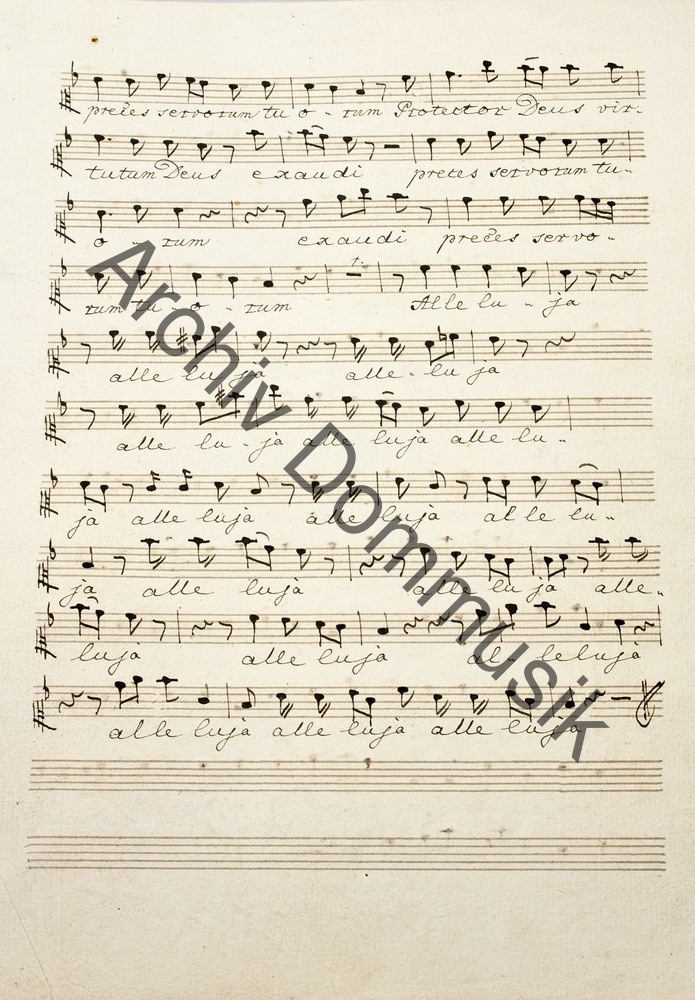 preces servorum tu o - rum Protector Deus vir-
tutum Deus exaudi preces servorum tu-
o - rum exaudi preces servo-
rum tu - o - rum Alle lu - ja
alle lu ja alle - lu ja
alle lu - ja alle luja alle lu-
ja alle luja alle luja alle lu-
ja alle luja alle lu ja alle-
luja alle luja al - leluja
alle luja alle luja alle luja
Archiv Dommusik